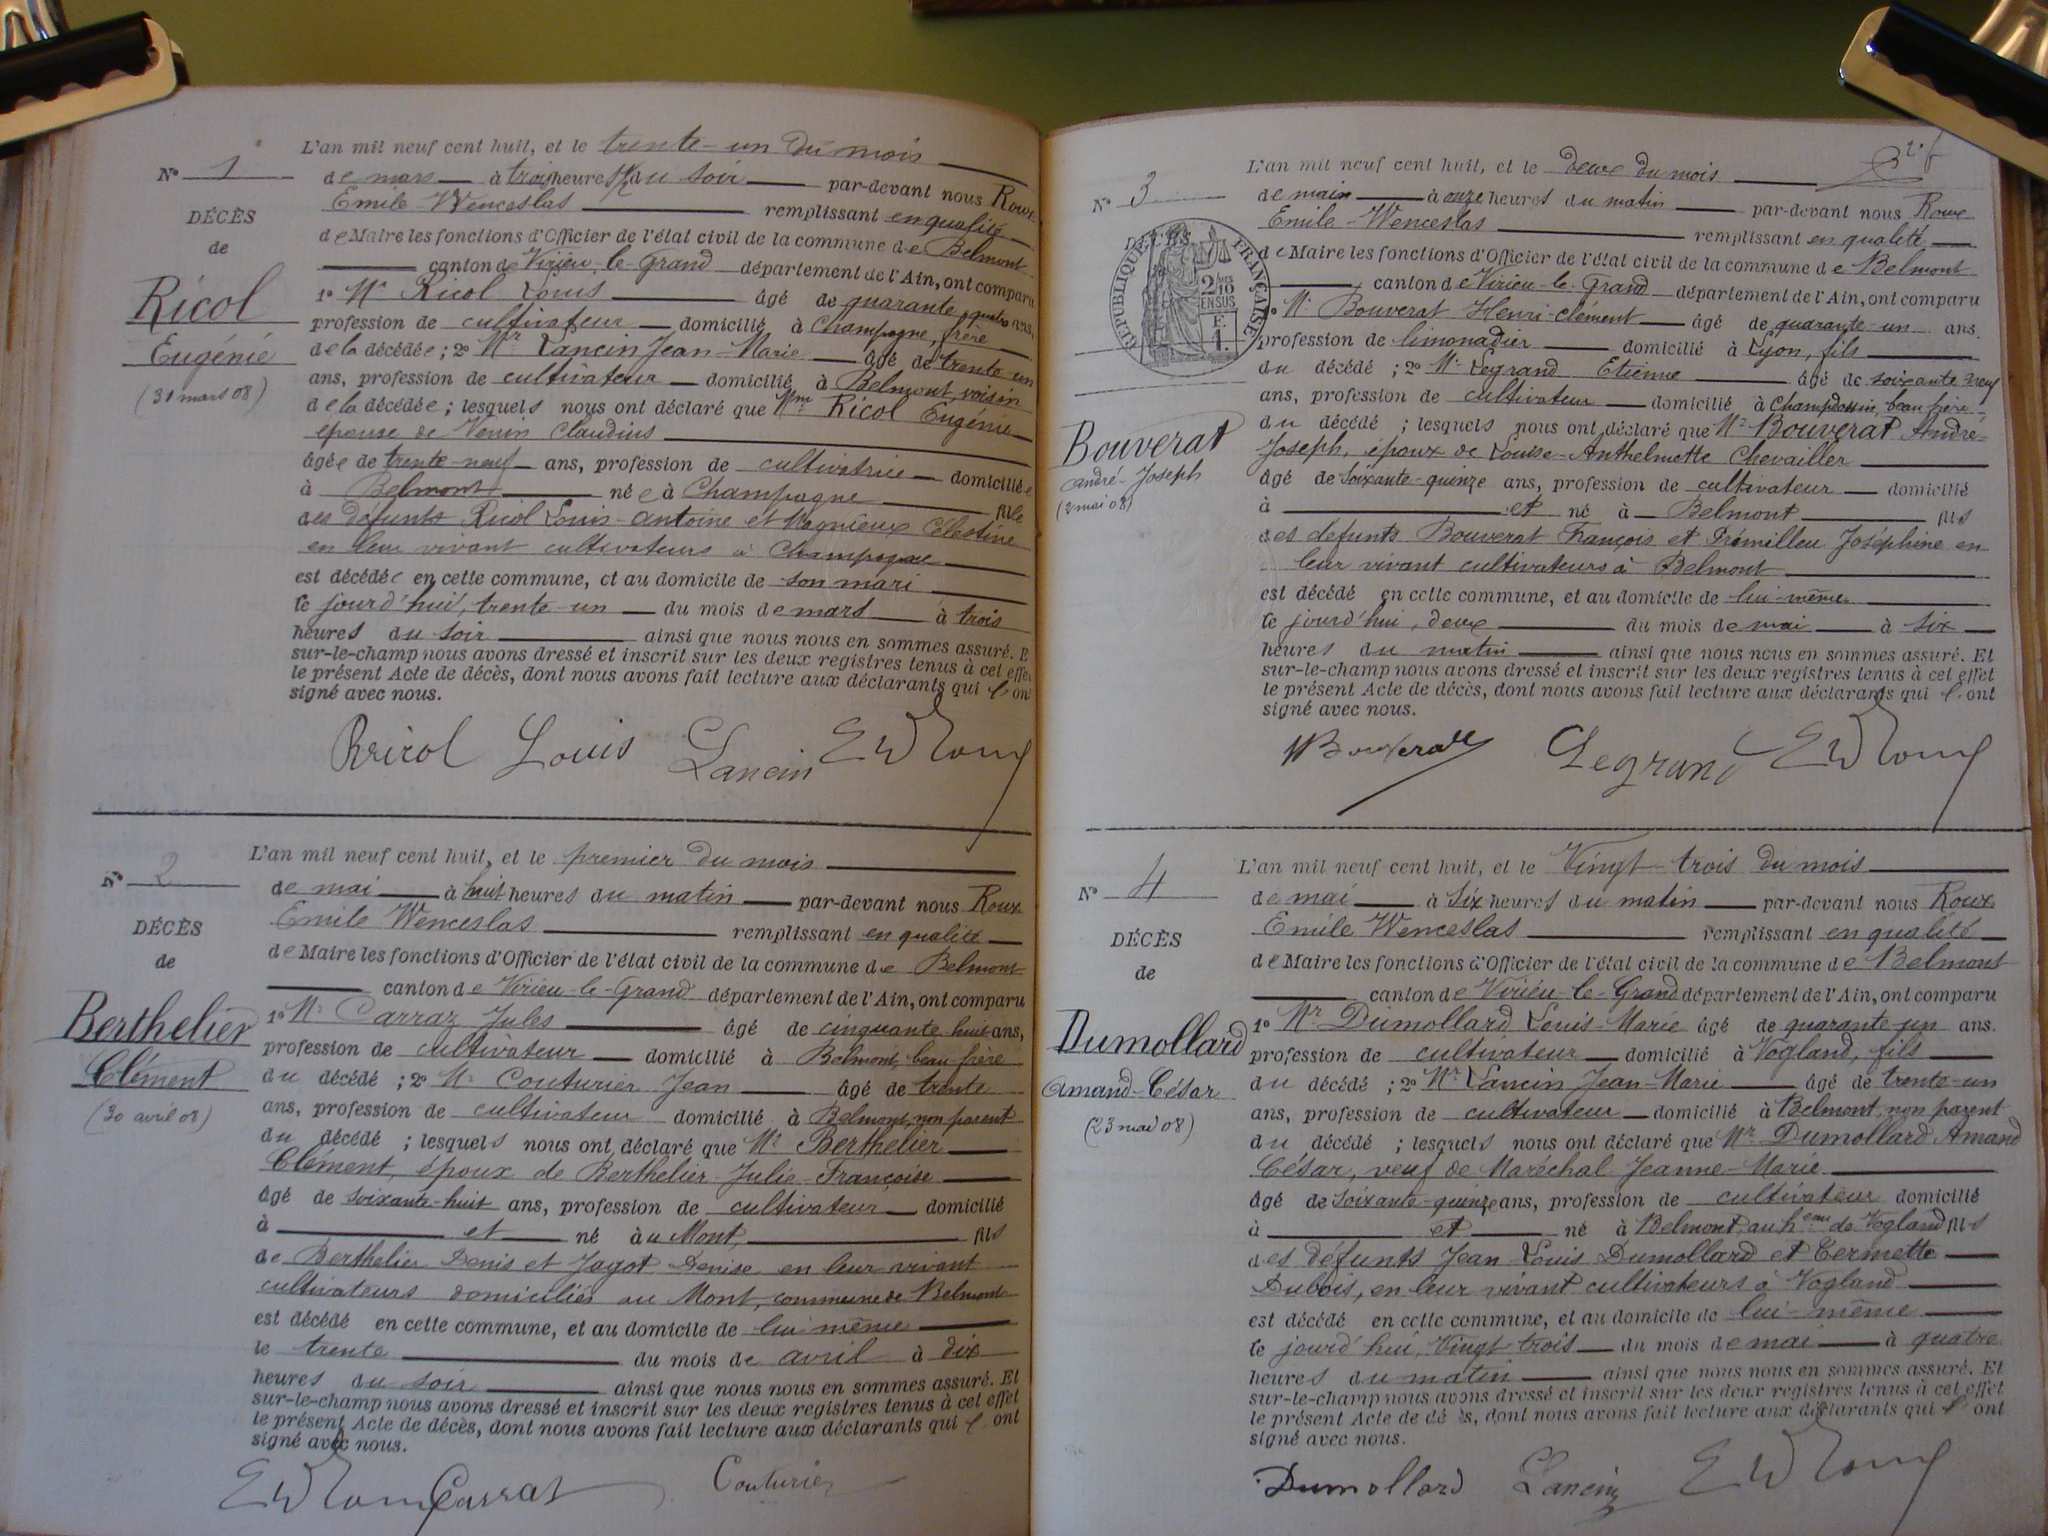 L'an mil neuf cent huit, et le trente-un du mois
N° 1
de mars à trois heures 1/2 du soir par-devant nous Roux
Emile Wenceslas remplissant en qualité
DÉCÈS
de Maire les fonctions d'Officier de l'état civil de la commune de Belmont
de
canton de Virieu-le-Grand département de l'Ain, ont comparu
Ricol
1° Mr Ricol Louis âgé de quarante quatre ans,
profession de cultivateur domicilié à Champagne, frère
Eugénie
de la décédée ; 2° Mr Lancin Jean-Marie âgé de trente un
(31 mars 08)
ans, profession de cultivateur domicilié à Belmont voisin
de la décédée ; lesquels nous ont déclaré que Mme Ricol Eugénie
épouse de Venin Claudius
âgée de trente-neuf ans, profession de cultivatrice domiciliée
à Belmont née à Champagne fille
des défunts Ricol Louis-Antoine et Célestine
en leur vivant cultivateurs à Champagne
est décédée en cette commune, et au domicile de son mari
le jourd'hui, trente-un du mois de mars à trois
heures du soir ainsi que nous nous en sommes assuré. E
sur-le-champ nous avons dressé et inscrit sur les deux registres tenus à cet effet
le présent Acte de décès, dont nous avons fait lecture aux déclarants qui l'ont
signé avec nous.
Ricol Louis Lancin E W Roux
L'an mil neuf cent huit, et le premier du mois
N° 2
de mai à huit heures du matin par-devant nous Roux
Emile Wenceslas remplissant en qualité
DÉCÈS
de Maire les fonctions d'Officier de l'état civil de la commune de Belmont
de
canton de Virieu-le-Grand département de l'Ain, ont comparu
Berthelier
1° Mr Carraz Jules âgé de cinquante-huit ans,
profession de cultivateur domicilié à Belmont, beau frère
Clément
du décédé ; 2° Mr Couturier Jean âgé de trente
(30 avril 08)
ans, profession de cultivateur domicilié à Belmont, non parent
du décédé ; lesquels nous ont déclaré que Mr Berthelier
Clément, époux de Berthelier Julie-Françoise
âgé de soixante-huit ans, profession de cultivateur domicilié
à et né à au Mont, fils
de Berthelier Denis et Jagot Denise en leur vivant
cultivateurs domiciliés au Mont, commune de Belmont
est décédé en cette commune, et au domicile de lui même
le trente du mois de avril à dix
heures du soir ainsi que nous nous en sommes assuré. Et
sur-le-champ nous avons dressé et inscrit sur les deux registres tenus à cet effet
le présent Acte de décès, dont nous avons fait lecture aux déclarants qui l'ont
signé avec nous.
E W Roux Carraz Couturier
L'an mil neuf cent huit, et le deux du mois
N° 3
de mai à onze heures du matin par-devant nous Roux
Emile-Wenceslas remplissant en qualité
DÉCÈS
RÉPUBLIQUE FRANÇAISE
2 10
EN SUS
de Maire les fonctions d'Officier de l'état civil de la commune de Belmont
canton de Virieu-le-Grand département de l'Ain, ont comparu
1° Mr Bouverat Henri-Clément âgé de quarante-un ans.
profession de limonadier domicilié à Lyon, fils
du décédé ; 2° Mr Legrand Etienne âgé de soixante neuf
ans, profession de cultivateur domicilié à Champdossin, beau frère
Bouverat
du décédé ; lesquels nous ont déclaré que Mr Bouverat André-
André-Joseph
Joseph, époux de Louise-Anthelmette Chevailler
(2 mai 08)
âgé de soixante-quinze ans, profession de cultivateur domicilié
à et né à Belmont fils
des defunts Bouverat François et Prémilleu Joséphine en
leur vivant cultivateurs à Belmont
est décédé en cette commune, et au domicile de lui-même
le jourd'hui, deux du mois de mai à six
heures du matin ainsi que nous nous en sommes assuré. Et
sur-le-champ nous avons dressé et inscrit sur les deux registres tenus à cet effet
le présent Acte de décès, dont nous avons fait lecture aux déclarants qui l'ont
signé avec nous.
HBouverat Legrand E W Roux
L'an mil neuf cent huit, et le Vingt-trois du mois
N° 4
de mai à six heures du matin par-devant nous Roux
Emile Wenceslas remplissant en qualité
DÉCÈS
de Maire les fonctions d'Officier de l'état civil de la commune de Belmont
de
canton de Virieu-le-Grand département de l'Ain, ont comparu
Dumollard
1° Mr Dumollard Louis-Marie âgé de quarante-un ans.
profession de cultivateur domicilié à Vogland, fils
Amand-César
du décédé ; 2° Mr Lancin Jean-Marie âgé de trente-un
(23 mai 08)
ans, profession de cultivateur domicilié à Belmont, non parent
du décédé ; lesquels nous ont déclaré que Mr Dumollard Amand
César, veuf de Maréchal Jeanne-Marie
âgé de soixante-quinze ans, profession de cultivateur domicilié
à et né à Belmont au heau de Vogland fils
des défunts Jean Louis Dumollard et Cermette
Dubois, en leur vivant cultivateurs à Vogland
est décédé en cette commune, et au domicile de lui-même
le jourd'hui, Vingt trois du mois de mai à quatre
heures du matin ainsi que nous nous en sommes assuré. Et
sur-le-champ nous avons dressé et inscrit sur les deux registres tenus à cet effet
le présent Acte de décès, dont nous avons fait lecture aux déclarants qui l'ont
signé avec nous.
Dumollard Lancin E W Roux